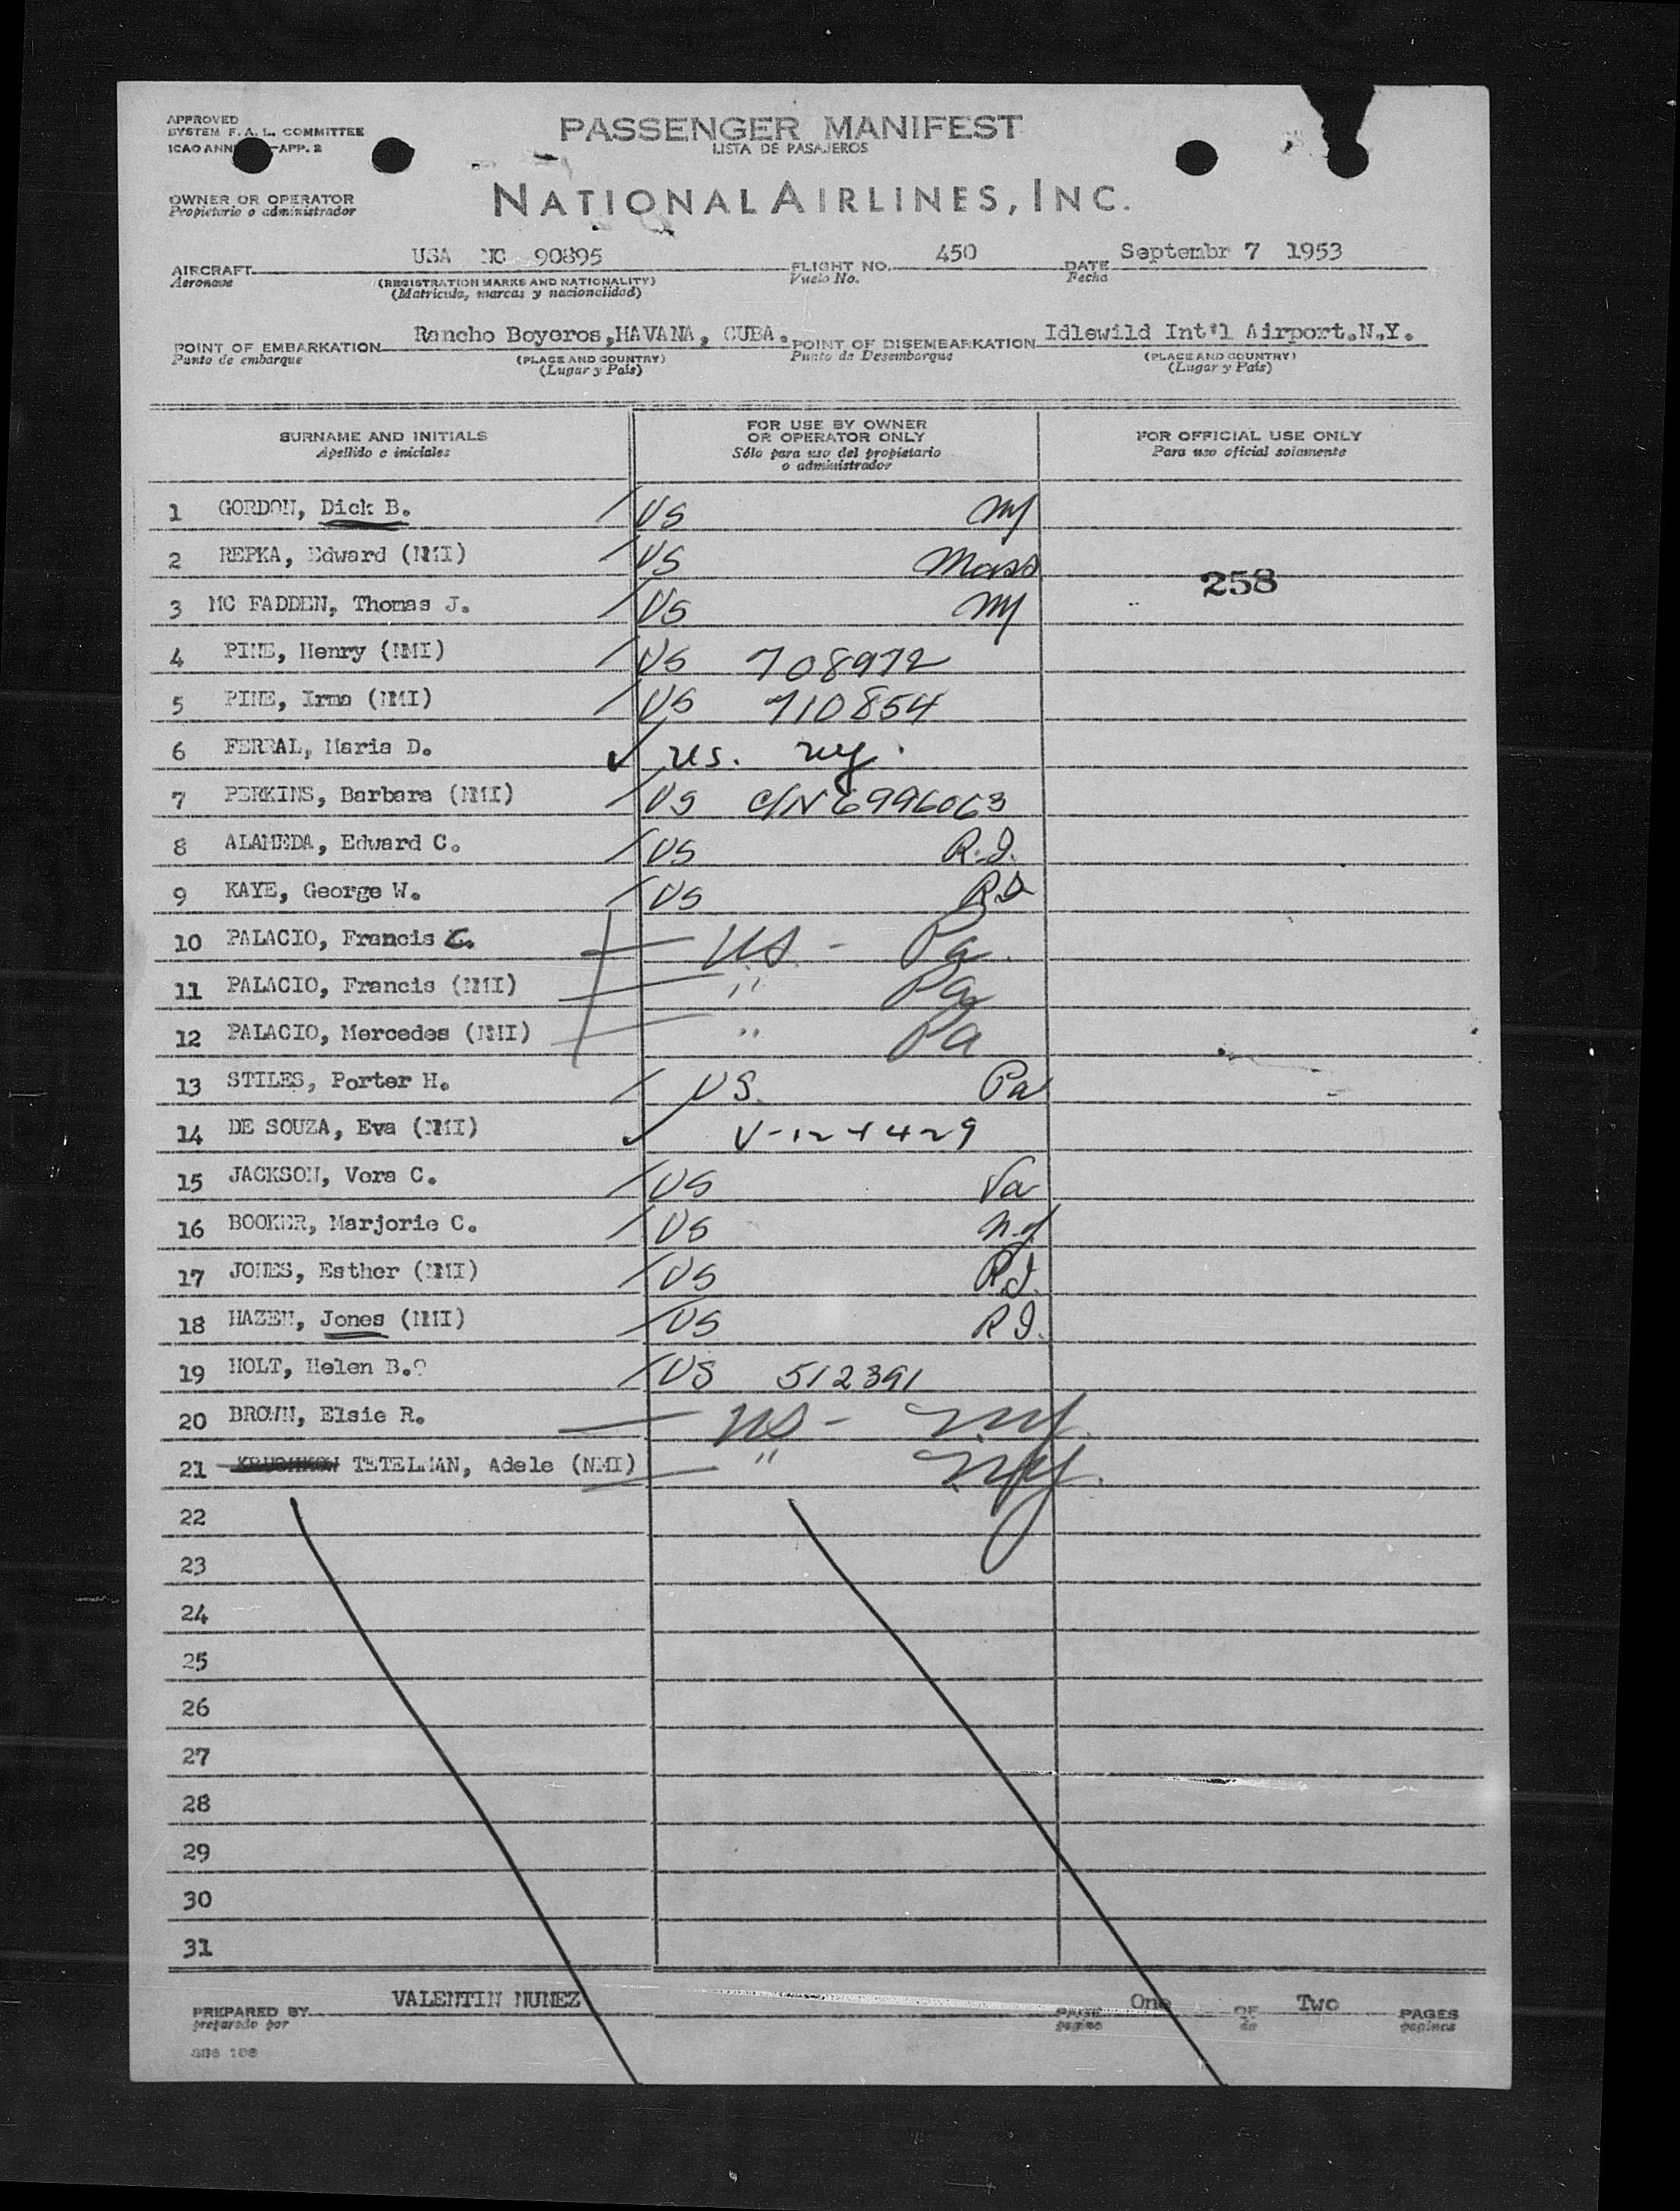 APPROVED
SYSTEM F. A. L. COMMITTEE
ICAO ANN -APP. 2
PASSENGER MANIFEST
LISTA DE PASAJEROS
OWNER OR OPERATOR
Propietario o administrador
NATIONAL AIRLINES, INC.
AIRCRAFT USA NC 90895 FLIGHT NO. 450 DATE Septembr 7 1953
Aeronave (REGISTRATION MARKS AND NATIONALITY) Vuelo No. Fecha
(Matricula, marcas y nacionalidad)
POINT OF EMBARKATION Rancho Boyeros,HAVANA, CUBA. POINT OF DISEMBARKATION Idlewild Int'l Airport.N.Y.
Punto de embarque (PLACE AND COUNTRY) Punto de Desembarque (PLACE AND COUNTRY)
(Lugar y País) (Lugar y País)
SURNAME AND INITIALS
Apellido e iniciales
FOR USE BY OWNER
OR OPERATOR ONLY
Sólo para uso del propietario
o administrador
FOR OFFICIAL USE ONLY
Para uso oficial solamente
1 GORDON, Dick B. US NY
2 REPKA, Edward (NMI) US Mass
258
3 MC FADDEN, Thomas J. US NY
4 PINE, Henry (NMI) US 708972
5 PINE, Irma (NMI) US 710854
6 FERRAL, Maria D. US. NY.
7 PERKINS, Barbara (NMI) US C/N 6996063
8 ALAMEDA, Edward C. US R.I.
9 KAYE, George W. US RI
10 PALACIO, Francis C. US - Pa.
11 PALACIO, Francis (NMI) " Pa
12 PALACIO, Mercedes (NMI) " Pa
13 STILES, Porter H. US. Pa
14 DE SOUZA, Eva (NMI) V-121429
15 JACKSON, Vera C. US Va
16 BOOKER, Marjorie C. US N.Y
17 JONES, Esther (NMI) US R.I.
18 HAZEN, Jones (NMI) US R I.
19 HOLT, Helen B. US 512391
20 BROWN, Elsie R. US - NY.
21 TETELMAN, Adele (NMI) " NY.
22
23
24
25
26
27
28
29
30
31
PREPARED BY VALENTIN NUNEZ PAGE One OF Two PAGES
preparado por pagina de paginas